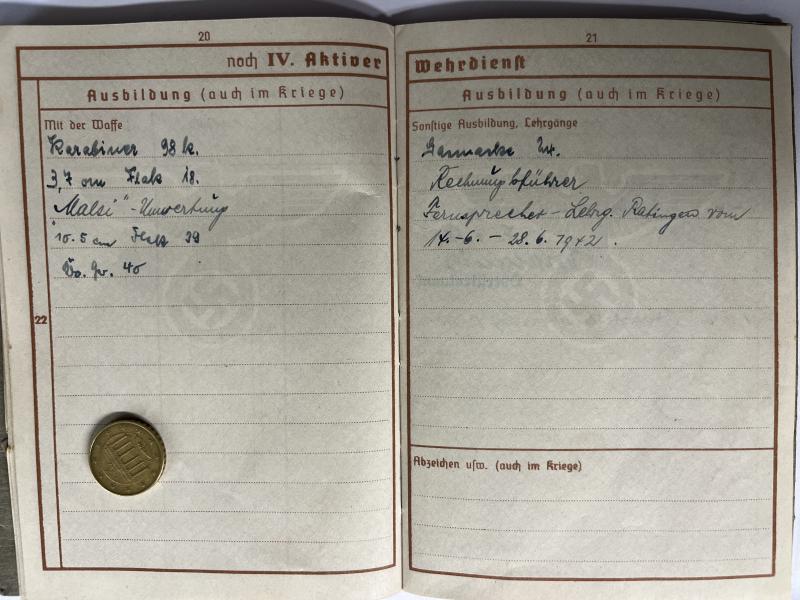 20
noch IV. Aktiver
Ausbildung (auch im Kriege)
Mit der Waffe
Karabiner 98 k.
3,7 cm Flak 18.
"Malsi" - Umwertung
10.5 cm Flak 39
Ko. Gr. 40
22
21
Wehrdienst
Ausbildung (auch im Kriege)
Sonstige Ausbildung, Lehrgänge
Gasmaske 24.
Rechnungsführer
Fernsprecher - Lehrg. Ratingen vom
14.-6. - 28.6.1942.
Abzeichen usw. (auch im Kriege)